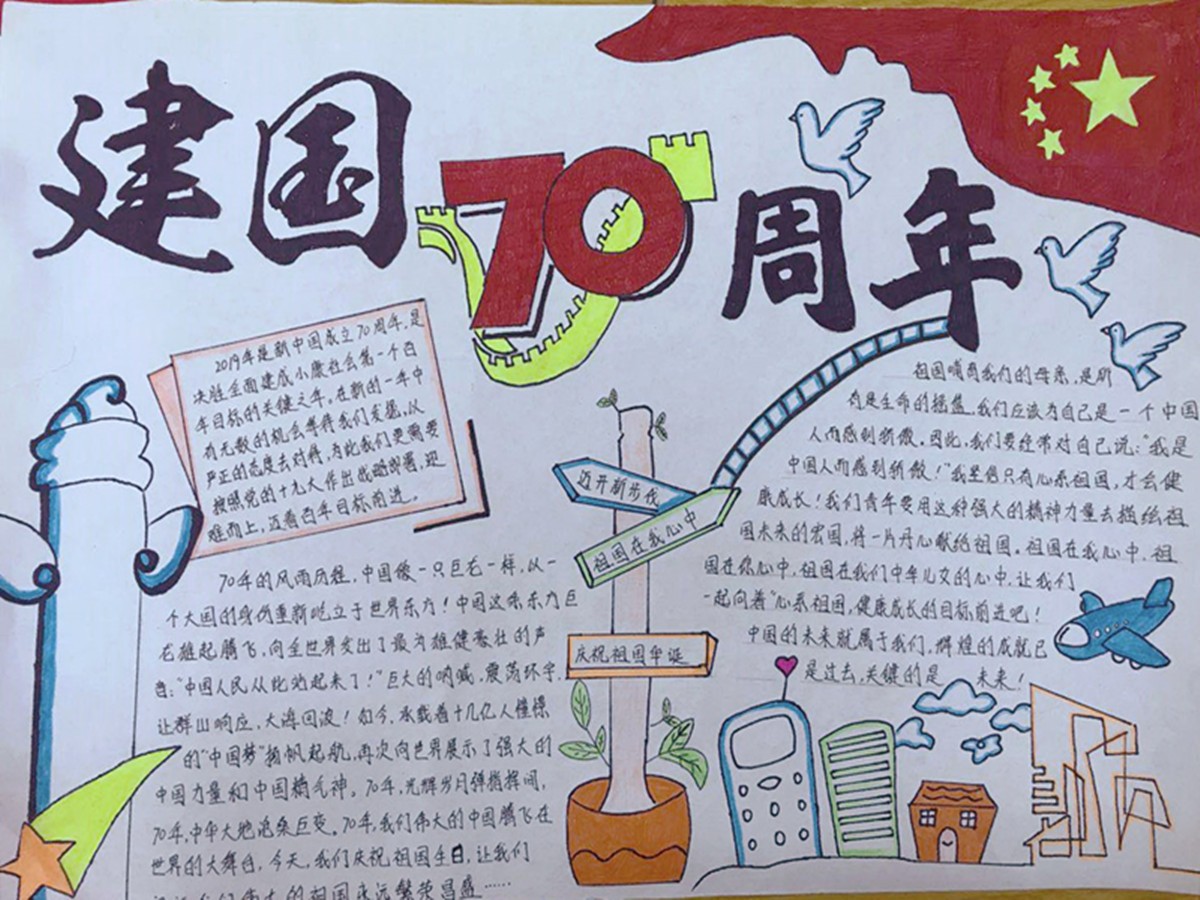 建国70周年
2019年是新中国成立70周年,是
决胜全面建成小康社会第一个百
年目标的关键之年。在新的一年中
有无数的机会等待我们发掘,以
严正的态度去对待,为此我们更需要
按照党的十九大作出战略部署,迎
难而上,迈着百年目标前进。
70年的风雨历程,中国像一只巨龙一样,以一
个大国的身份重新屹立于世界东方!中国这条东方巨
龙雄起腾飞,向全世界发出了最为雄健豪壮的声
音:“中国人民从此站起来了!”巨大的呐喊,震荡环宇,
让群山响应,大海回波!如今,承载着十几亿人憧憬
的“中国梦”扬帆起航,再次向世界展示了强大的
中国力量和中国精气神。70年,光辉岁月弹指挥间,
70年,中华大地沧桑巨变。70年,我们伟大的中国腾飞在
世界的大舞台,今天,我们庆祝祖国生日,让我们
我们伟大的祖国永远繁荣昌盛……
迈开新步伐
祖国在我心中
庆祝祖国华诞
祖国哺育我们的母亲,是所
有是生命的摇篮,我们应该为自己是一个中国
人而感到骄傲。因此,我们要经常对自己说:“我是
中国人而感到骄傲!”我坚信只有心系祖国,才会健
康成长!我们青年要用这种强大的精神力量去描绘祖
国未来的宏图,将一片丹心献给祖国。祖国在我心中,祖
国在你心中,祖国在我们中华儿女的心中,让我们
一起向着“心系祖国,健康成长的目标前进吧!
中国的未来就属于我们,辉煌的成就已
是过去,关键的是 未来!